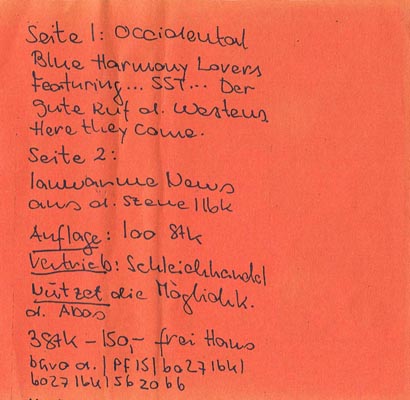 Seite 1: Occidental
Blue Harmony Lovers
Featuring... SST... Der
gute Ruf d. Westens
Here they come.
Seite 2:
lauwarme News
aus d. Szene IIbk
Auflage: 100 Stk
Vertrieb: Schleichhandel
Nützet die Möglichk.
d. Abos
3 Stk - 150,- frei Haus
d. | PF 15 | 6027 Ibk |
6027 Ibk | 562066